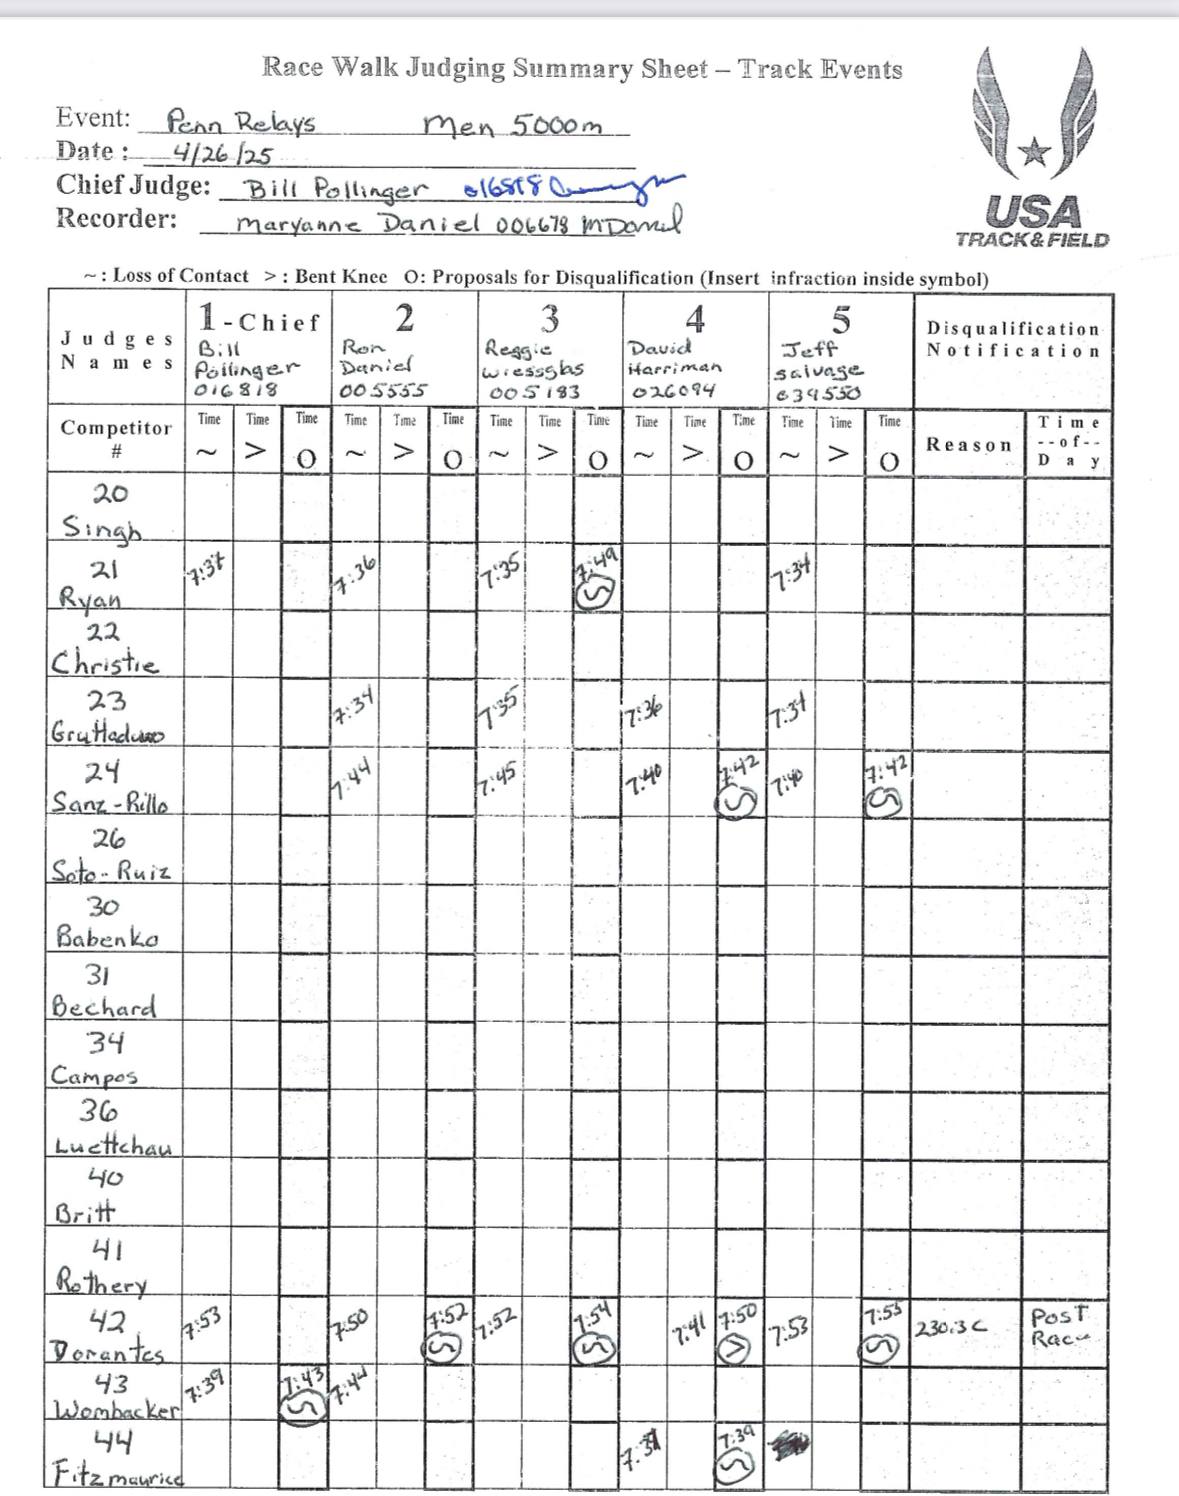 Race Walk Judging Summary Sheet – Track Events
Event: Penn Relays Men 5000m
Date : 4/26/25
Chief Judge: Bill Pollinger 016818
Recorder: Maryanne Daniel 006678 MDaniel
USA
TRACK & FIELD
~ : Loss of Contact > : Bent Knee O: Proposals for Disqualification (Insert infraction inside symbol)
Judges Names
1 - Chief Bill Pollinger 016818
2 Ron Daniel 005555
3 Reggie Wiessglas 005183
4 David Harriman 026094
5 Jeff Salvage 039550
Disqualification Notification
Competitor # Time ~ Time > Time O Time ~ Time > Time O Time ~ Time > Time O Time ~ Time > Time O Time ~ Time > Time O Reason Time --of-- Day
20 Singh
21 Ryan 7:37 7:36 7:35 7:49 ~ 7:34
22 Christie
23 7:34 7:35 7:36 7:37
24 Sanz-Rillo 7:44 7:45 7:40 7:42 ~ 7:40 7:42 ~
26 Soto-Ruiz
30 Babenko
31 Bechard
34 Campos
36 Luettchau
40 Britt
41 Rothery
42 Dorantes 7:53 7:50 7:52 ~ 7:52 7:54 ~ 7:41 7:50 > 7:53 7:55 ~ 230.3C Post Race
43 Wombacker 7:39 7:43 ~ 7:44
44 Fitzmaurice 7:39 ~